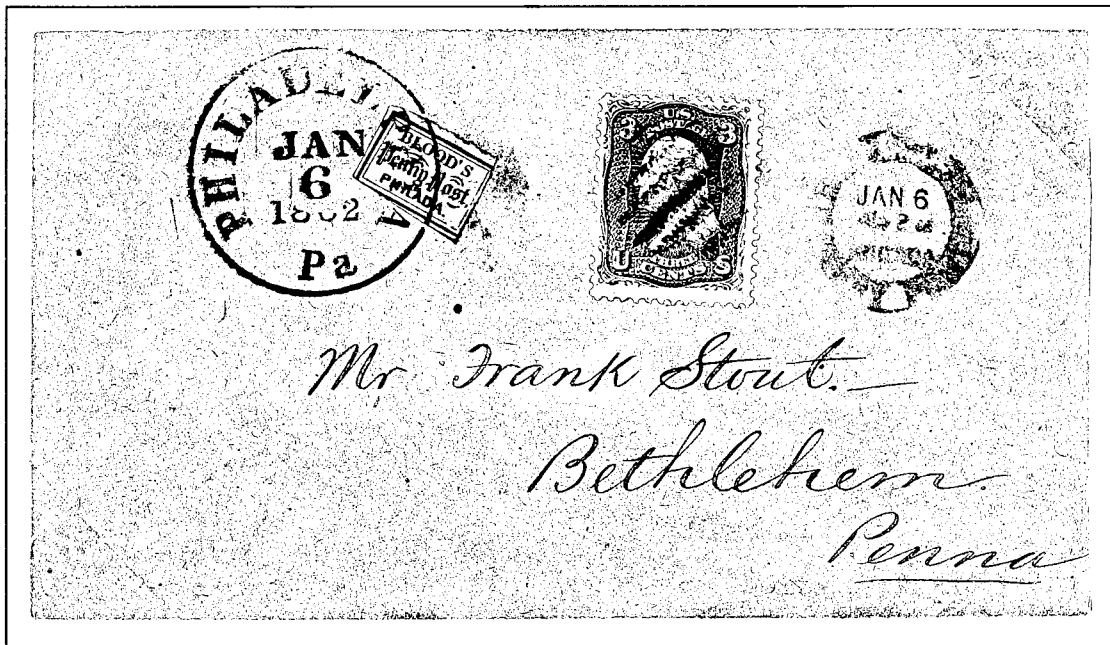 PHILADEL A
JAN
6
1862
Pa
BLOOD'S
Penny Post
PHILADA
U S
3 3
U S
JAN 6
Mr Frank Stout.
Bethlehem
Penna